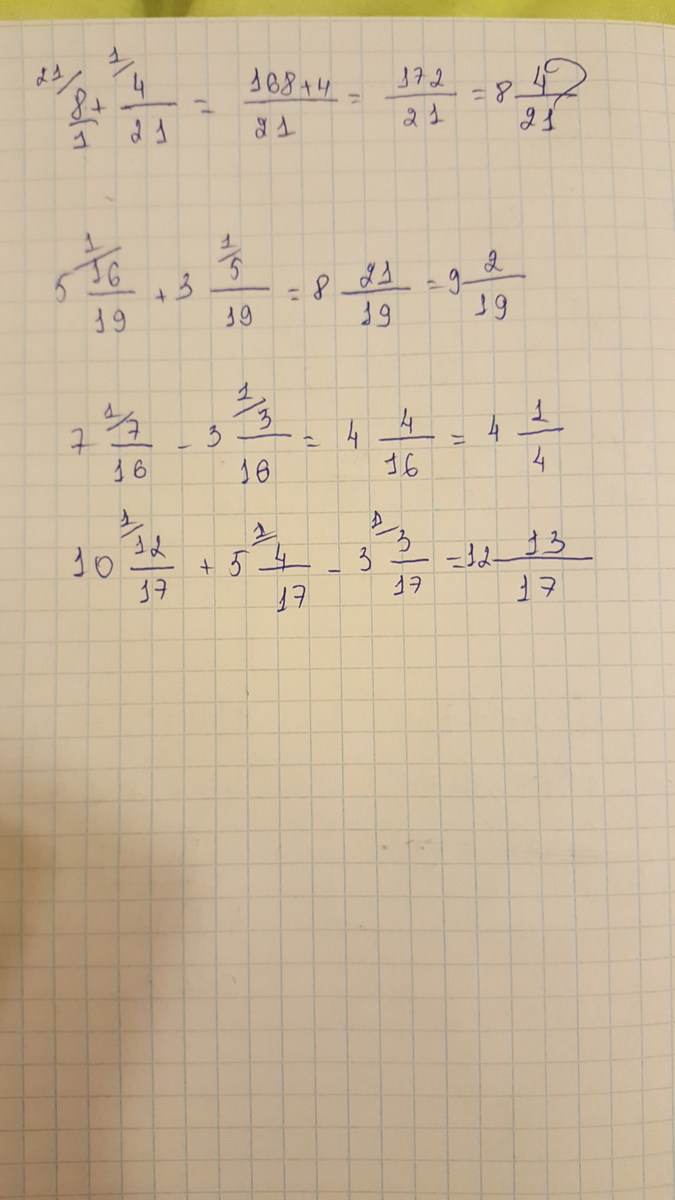 21/ 8/1 + 1/ 4/21 = 168+4/21 = 172/21 = 8 4/21
5 1/ 16/19 + 3 1/ 5/19 = 8 21/19 = 9 2/19
7 1/ 7/16 - 3 1/ 3/16 = 4 4/16 = 4 1/4
10 1/ 12/17 + 5 1/ 4/17 - 3 1/ 3/17 = 12 13/17